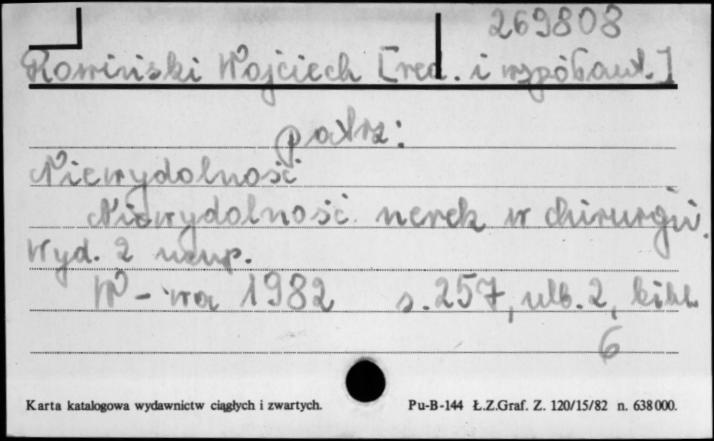 269808
Rowiński Wojciech [red. i współaut.]
patrz:
Niewydolność
Niewydolność nerek w chirurgii.
Wyd. 2 uzup.
W-wa 1982 s. 257, nlb. 2, bibl.
6
Karta katalogowa wydawnictw ciągłych i zwartych.
Pu-B-144 Ł.Z.Graf. Z. 120/15/82 n. 638000.